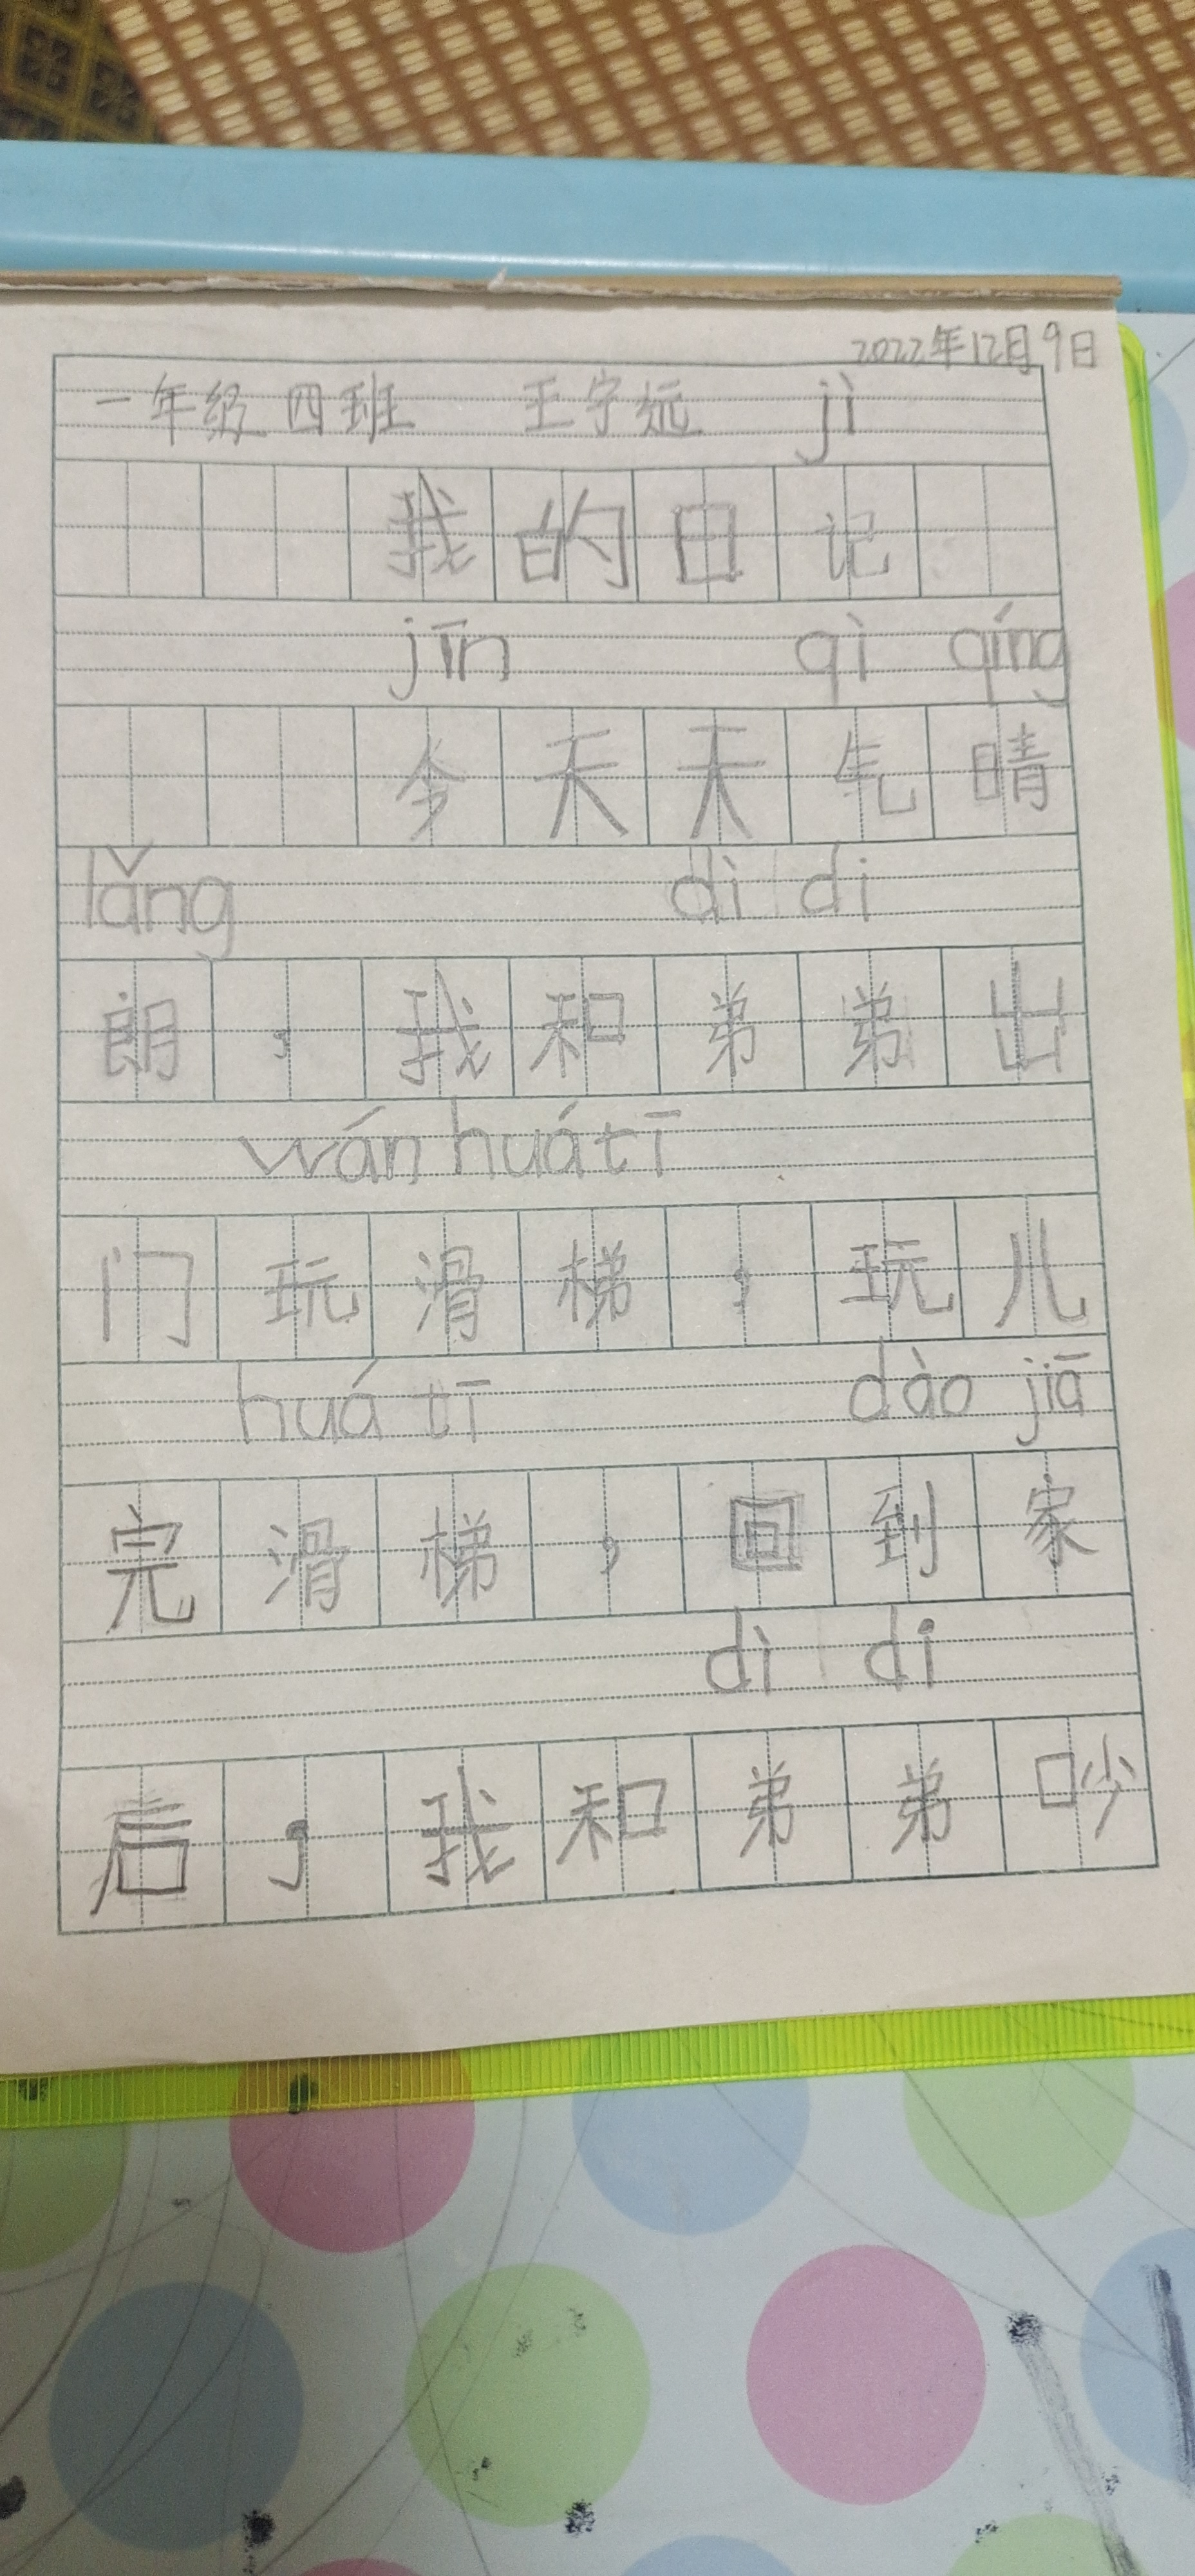 2022年12月9日
一年级四班 王宇远 jì
我的日记
jīn qì qíng
今天天气晴
lǎng dì di
朗，我和弟弟出
wán huá tī
门玩滑梯，玩儿
huá tī dào jiā
完滑梯，回到家
dì di
后，我和弟弟吵